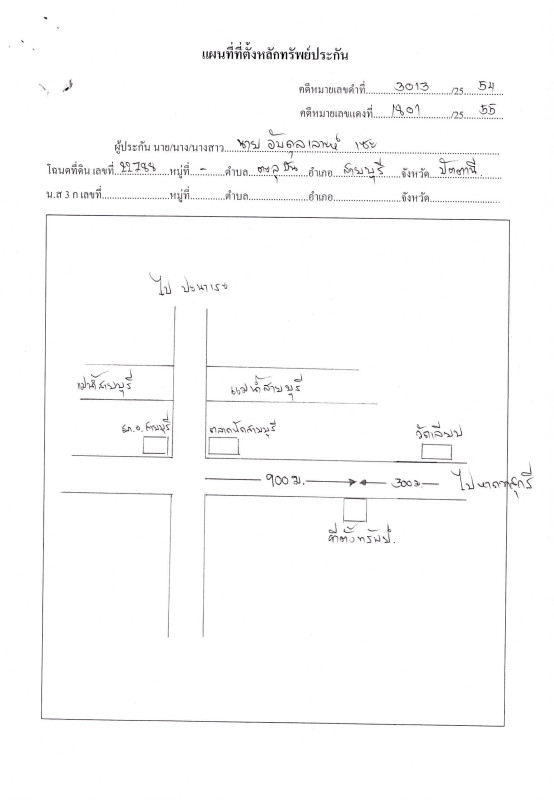 แผนที่ที่ตั้งหลักทรัพย์ประกัน
คดีหมายเลขดำที่ 3013 /25 54
คดีหมายเลขแดงที่ 1801 /25 55
ผู้ประกัน นาย/นาง/นางสาว นาย อับดุลเลาห์ เซะ
โฉนดที่ดิน เลขที่ 22788 หมู่ที่ - ตำบล ตะลุบัน อำเภอ สายบุรี จังหวัด ปัตตานี
น.ส 3 ก เลขที่ หมู่ที่ ตำบล อำเภอ จังหวัด
ไป ปะนาเระ
แม่น้ำสายบุรี
แม่น้ำสายบุรี
สายบุรี
ตลาดนัดสายบุรี
วัดเลียบ
900 ม.
300 ม.
ไปหาด
ที่ตั้งทรัพย์.